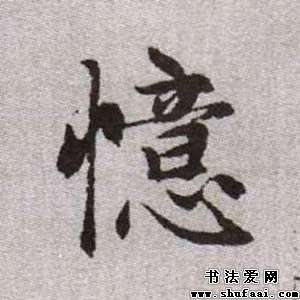 憶
书法爱网
www.shufaai.com